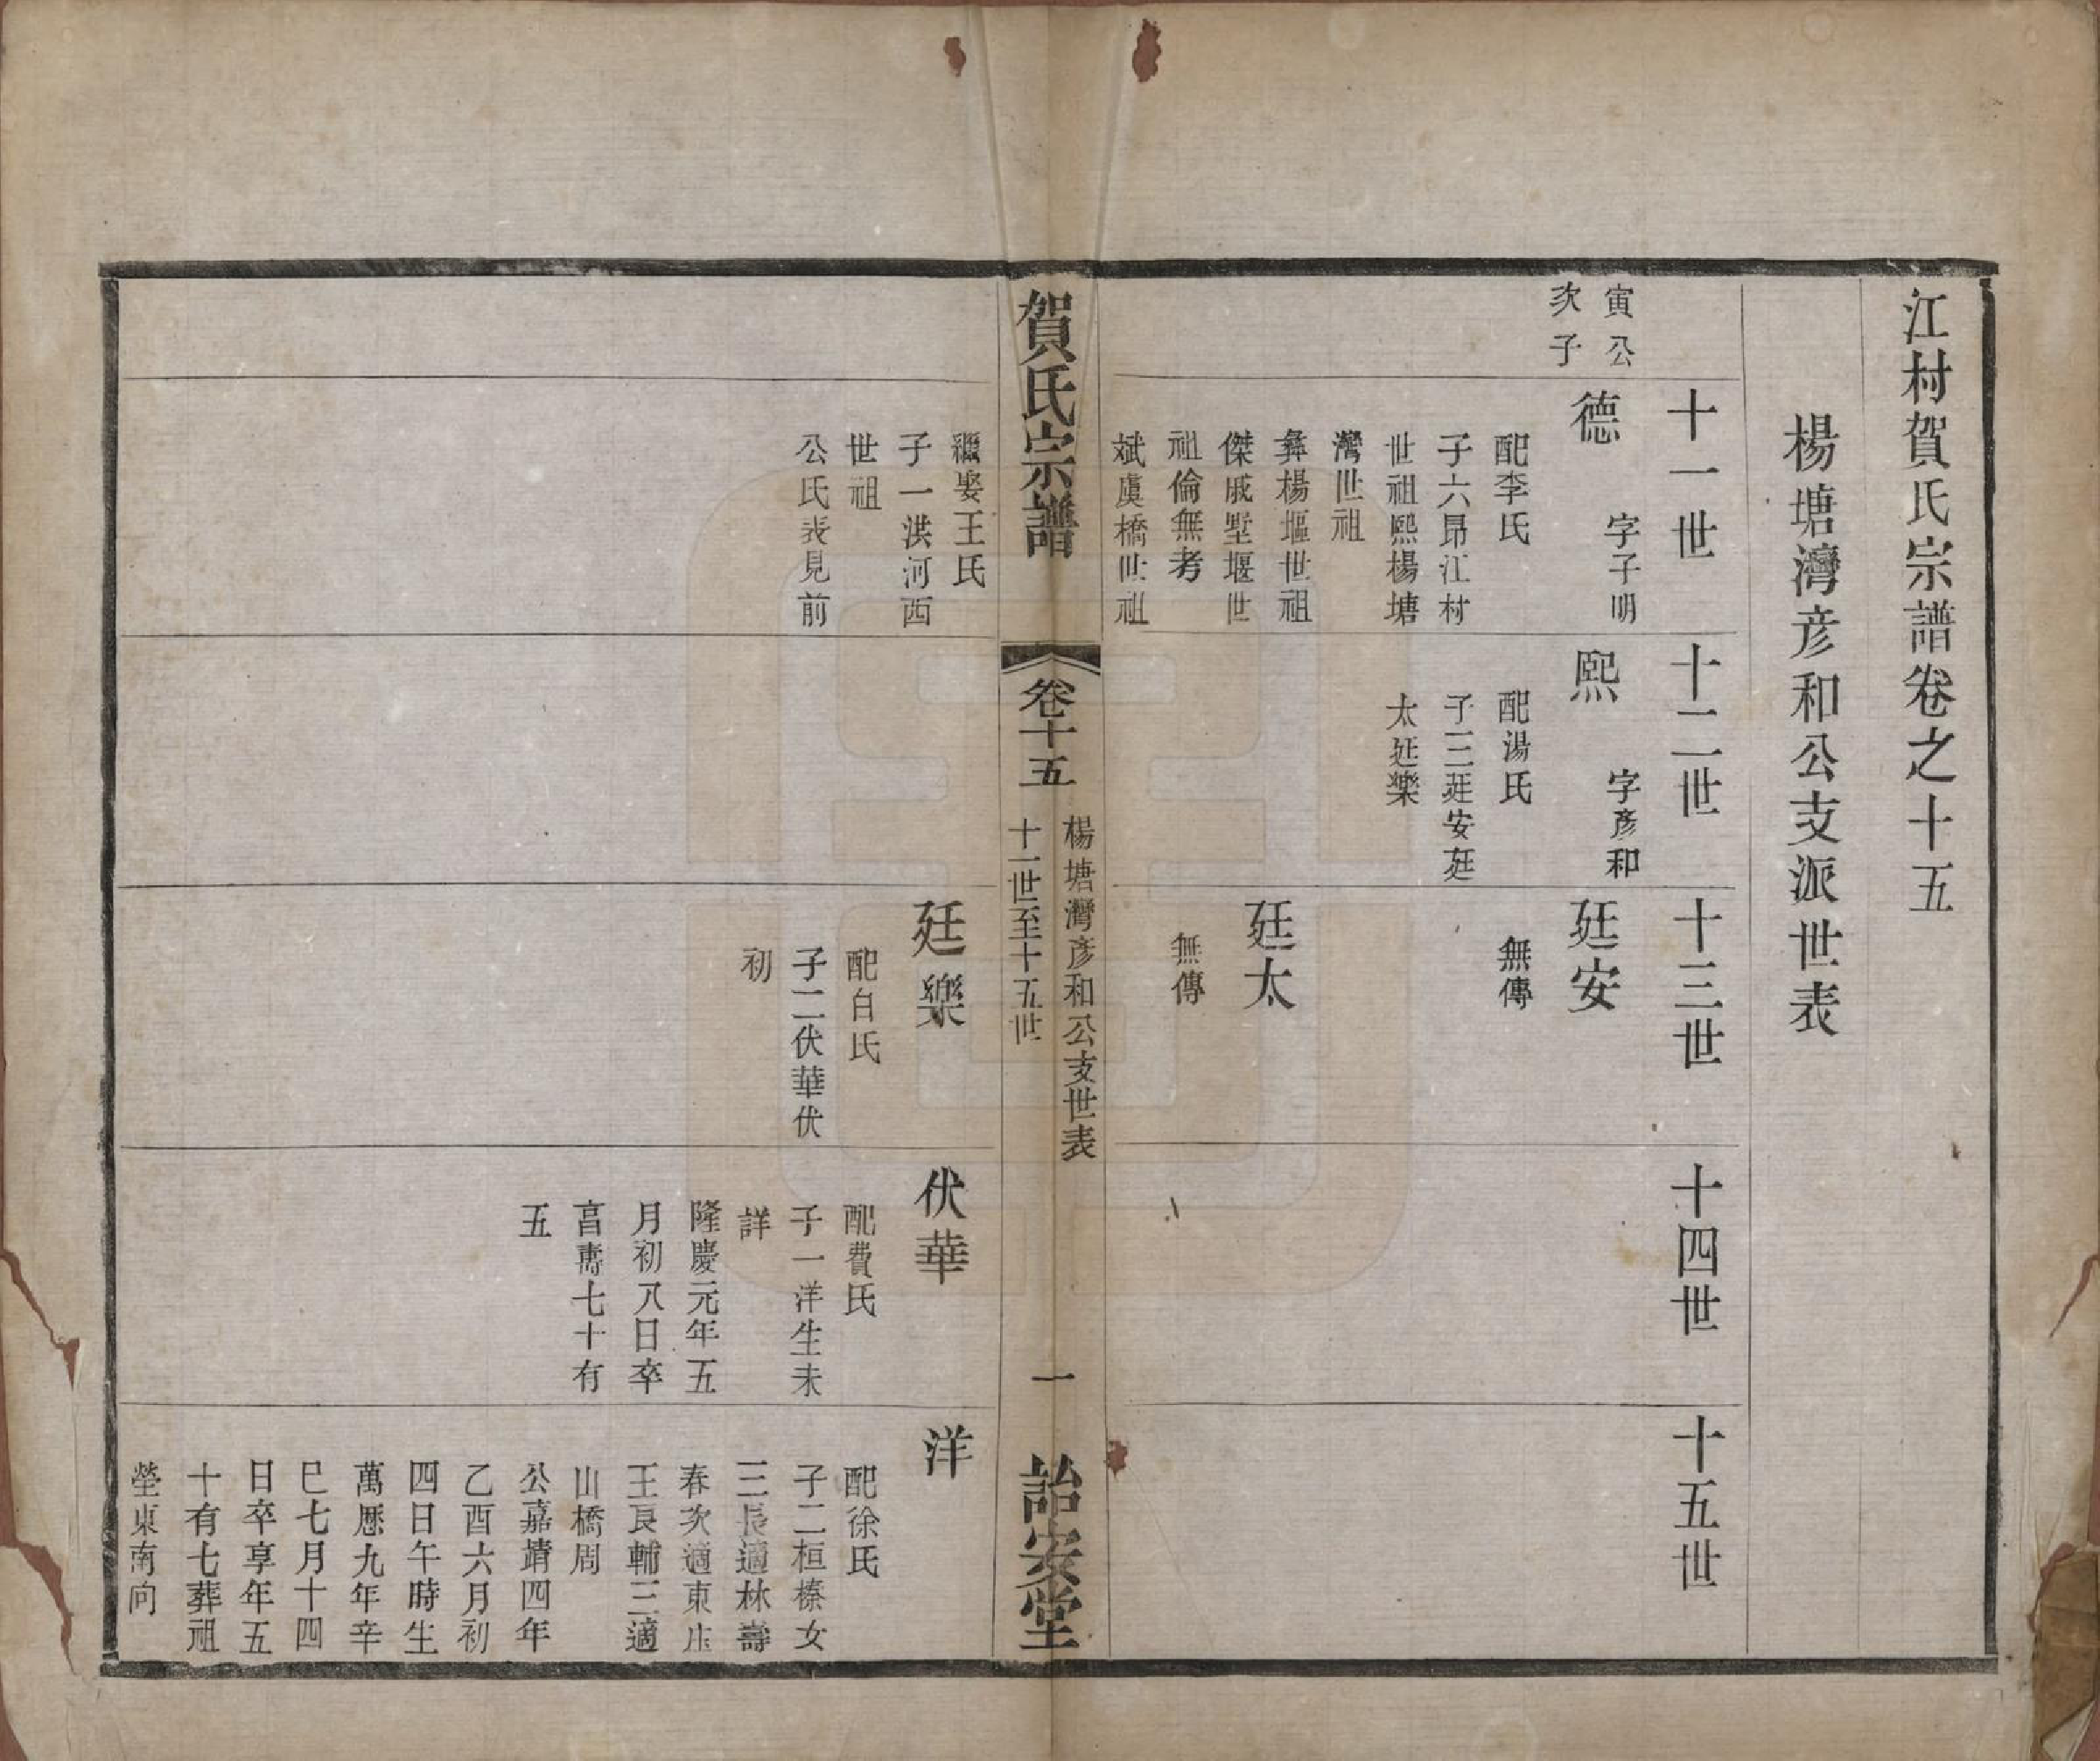 江村賀氏宗譜卷之十五
楊塘灣彦和公支派世表
十一世
十二世
十三世
十四世
十五世
寅公
次子
德
字子明
配李氏
子六昂江村
世祖熙楊塘
灣世祖
彝楊堰世祖
傑戚墅堰世
祖倫無考
斌虞橋世祖
熙
字彥和
配湯氏
子三廷安廷
太廷樂
廷安
無傳
廷太
無傳
賀氏宗譜
卷十五
楊塘灣彥和公支世表
十一世至十五世
一
詒安堂
繼娶王氏
子一洪河西
世祖
公氏表見前
廷樂
配白氏
子二伏華伏
初
伏華
配費氏
子一洋生未
詳
隆慶元年五
月初八日卒
亯壽七十有
五
洋
配徐氏
子二桓榛女
三長適林壽
春次適東庄
王良輔三適
山橋周
公嘉靖四年
乙酉六月初
四日午時生
萬歷九年辛
巳七月十四
日卒享年五
十有七葬祖
塋東南向